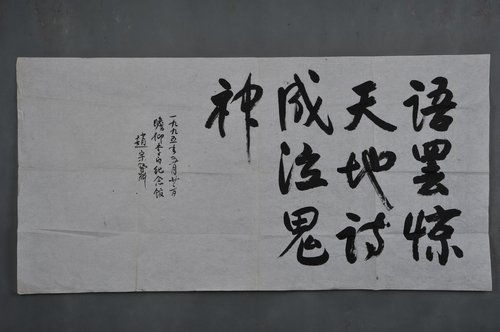 语罢惊
天地诗
成泣鬼
神
一九九五年六月廿六日
瞻仰李白纪念馆
赵宗鼐